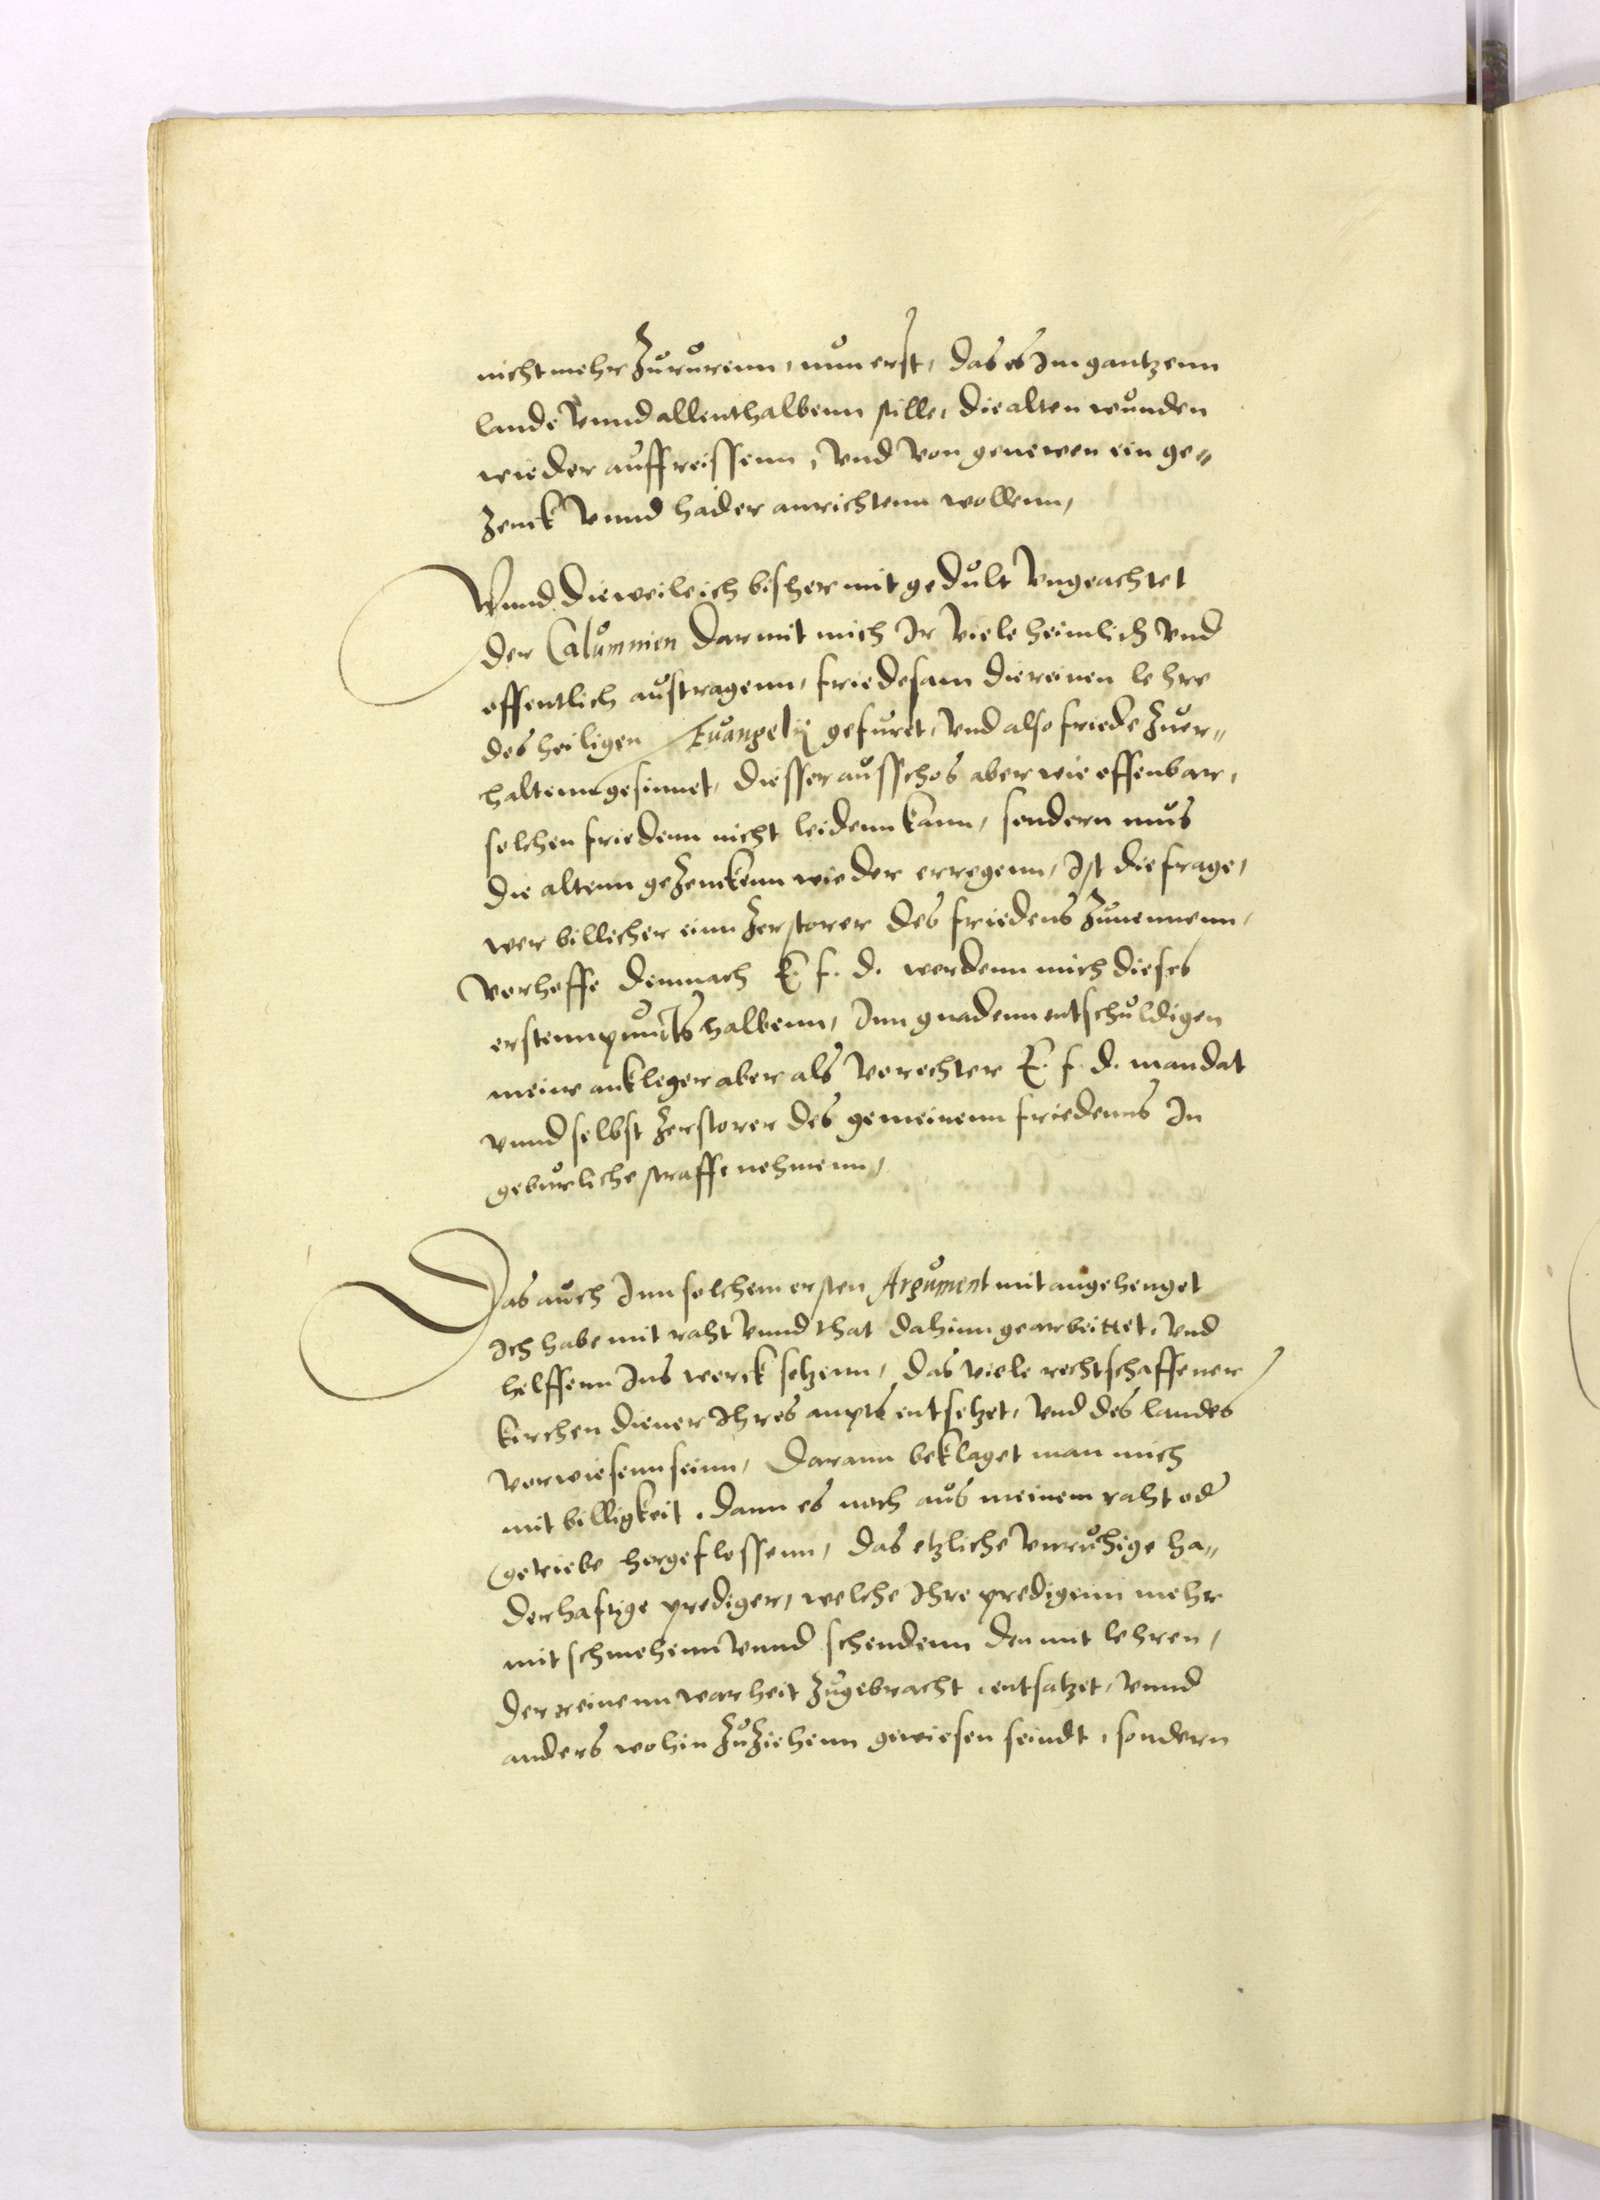 nicht mehr Zururenn, nun erst, das es Im gantzenn
lande Vnnd allenthalbenn stille, die alten wunden
wieder auffreissenn, Vnd von genewen ein ge=
Zenck Vnnd hader anrichtenn wollenn,
Vnnd dieweile ich bisher mit gedult Vngeachtet
der Calumnien darmit mich Ir viele heimlich Vnd
offentlich austragenn, friedesam die reinen lehre
des heiligen Euangelij gefuret, Vnd also friede Zuer=
haltenn gesinnet, diesser ausschos aber wie offenbar,
solchen friedenn nicht leidenn kann, sondern mus
die altenn geZenckenn wieder erregenn, Ist die frage,
wer billicher einn Zerstorer des friedens Zunennenn,
Verhoffe demnach E. f. d. werdenn mich dieses
erstenn puncts halbenn, Inn gnadenn entschuldigen
meine ankleger aber als Verechter E. f. d. mandat
vnnd selbst Zerstorer des gemeinenn friedenns In
geburliche straffe nehmenn,
Das auch Inn solchem ersten Argument mit angehenget
Ich habe mit raht Vnnd that dahinn gearbeittet, Vnd
helffenn Ins werck setzenn, das viele rechtschaffener
kirchen diener Ihres ampts entsetzet, Vnd des landes
verwiesenn seinn, darann beklaget man mich
mit billigkeit. dann es noch aus meinem raht oder
getriebe hergeflossenn, das etzliche Vnruhige ha=
derhaftige prediger, welche Ihre predigenn mehr
mit schmehenn Vnnd schendenn den mit lehren,
der reinenn warheit Zugebracht, entsatzet, Vnnd
anders wohin ZuZiehenn gewiesen seindt, sondern